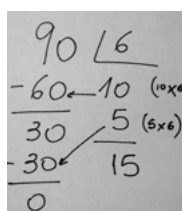 90 6
-60 ← 10 (10x6
30 5 (5x6)
-30 15
0